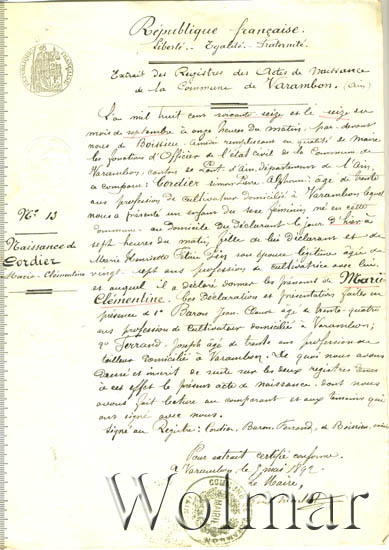 République française.
Liberté - Egalité - Fraternité.
Extrait des Registres des Actes de Naissance
de la Commune de Varambon. (Ain)
L'an mil huit cent soixante seize et le seize du
mois de septembre à onze heures du matin, par devant
nous de Boissieu, remplissant en qualité de maire
les fonctions d'Officier de l'état civil de la Commune de
Varambon, canton de Pont d'Ain, département de l'Ain,
a comparu: Cordier Alphonse âgé de trente
ans profession de cultivateur domicilié à Varambon lequel
nous a présenté un enfant du sexe féminin né en cette
commune au domicile du déclarant le jour d'hier à
sept heures du matin, fille de lui déclarant et de
Marie son épouse légitime âgée de
vingt sept ans profession de cultivatrice avec lui,
et auquel il a déclaré donner les prénoms de Marie
Clémentine. Ces déclaration et présentation faites en
présence de 1° Baron Jean Claude âgé de trente-quatre
ans profession de cultivateur domicilié à Varambon;
2° Ferrand Joseph âgé de trente ans profession de
tailleur domicilié à Varambon. Ce quoi nous avons
dressé et inscrit de suite sur les deux registres tenus
à cet effet le présent acte de naissance dont nous
avons fait lecture au comparant et aux témoins qui
ont signé avec nous.
Signé au Registre: Cordier, Baron, Ferrand, de Boissieu, maire
Pour extrait certifié conforme
à Varambon, le mai 1892
Le Maire,
N° 13
Naissance de
Cordier
Marie-Clémentine
Wolmar